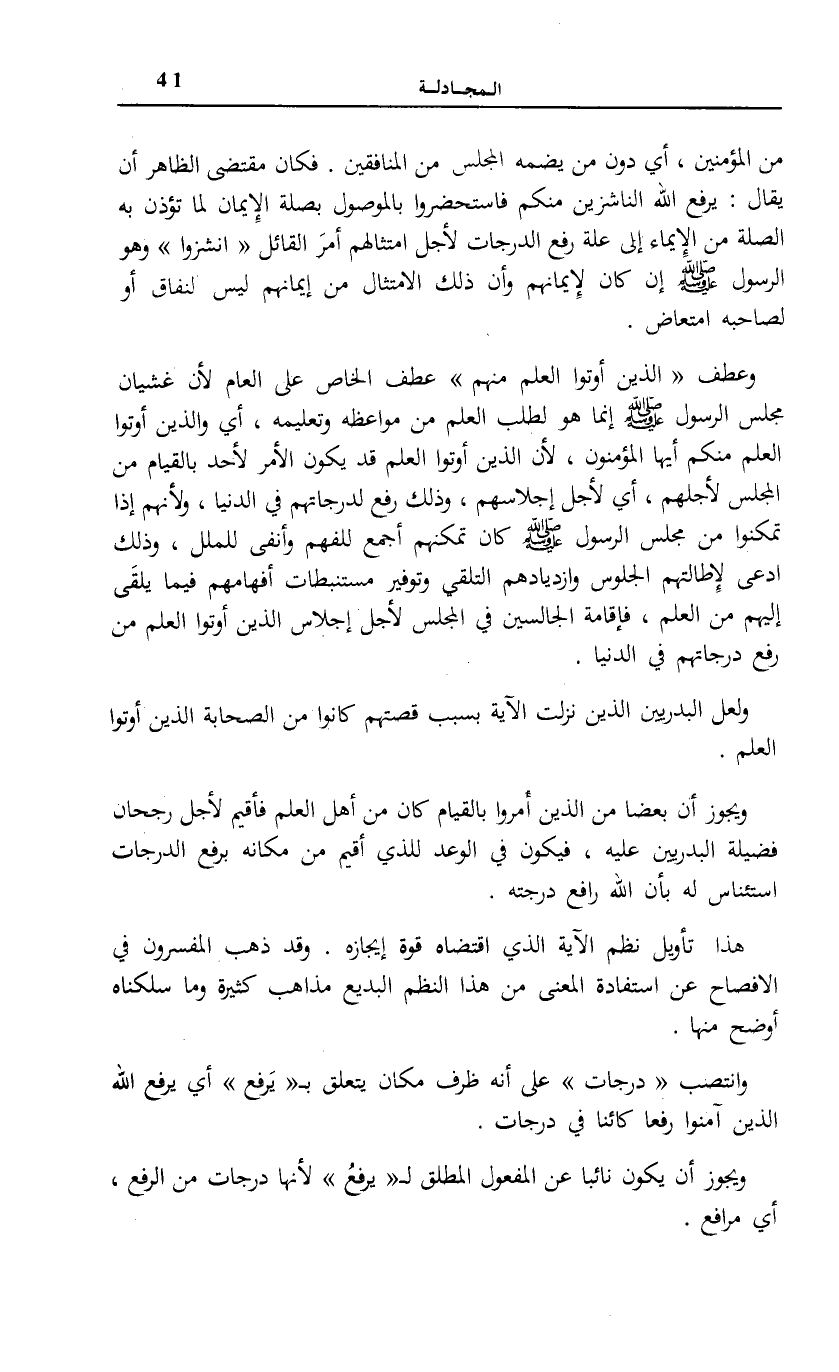 المجادلة 41
من المؤمنين ، أي دون من يضمه المجلس من المنافقين . فكان مقتضى الظاهر أن
يقال : يرفع الله الناشزين منكم فاستحضروا بالموصول بصلة الإِيمان لما تؤذن به
الصلة من الإِيماء إلى علة رفع الدرجات لأجل امتثالهم أمرَ القائل « انشزوا » وهو
الرسول ﷺ إن كان لإِيمانهم وأن ذلك الامتثال من إيمانهم ليس لنفاق أو
لصاحبه امتعاض .
وعطف « الذين أوتوا العلم منهم » عطف الخاص على العام لأن غشيان
مجلس الرسول ﷺ إنما هو لطلب العلم من مواعظه وتعليمه ، أي والذين أوتوا
العلم منكم أيها المؤمنون ، لأن الذين أوتوا العلم قد يكون الأمر لأحد بالقيام من
المجلس لأجلهم ، أي لأجل إجلاسهم ، وذلك رفع لدرجاتهم في الدنيا ، ولأنهم إذا
تمكنوا من مجلس الرسول ﷺ كان تمكنهم أجمع للفهم وأنفى للملل ، وذلك
ادعى لإِطالتهم الجلوس وازديادهم التلقي وتوفير مستنبطات أفهامهم فيما يلقَى
إليهم من العلم ، فإقامة الجالسين في المجلس لأجل إجلاس الذين أوتوا العلم من
رفع درجاتهم في الدنيا .
ولعل البدريين الذين نزلت الآية بسبب قصتهم كانوا من الصحابة الذين أوتوا
العلم .
ويجوز أن بعضا من الذين أُمروا بالقيام كان من أهل العلم فأقيم لأجل رجحان
فضيلة البدريين عليه ، فيكون في الوعد للذي أقيم من مكانه برفع الدرجات
استئناس له بأن الله رافع درجته .
هذا تأويل نظم الآية الذي اقتضاه قوة إيجازه . وقد ذهب المفسرون في
الافصاح عن استفادة المعنى من هذا النظم البديع مذاهب كثيرة وما سلكناه
أوضح منها .
وانتصب « درجات » على أنه ظرف مكان يتعلق بـ« يَرفع » أي يرفع الله
الذين آمنوا رفعا كائنا في درجات .
ويجوز أن يكون نائبا عن المفعول المطلق لـ« يرفعُ » لأنها درجات من الرفع ،
أي مرافع .